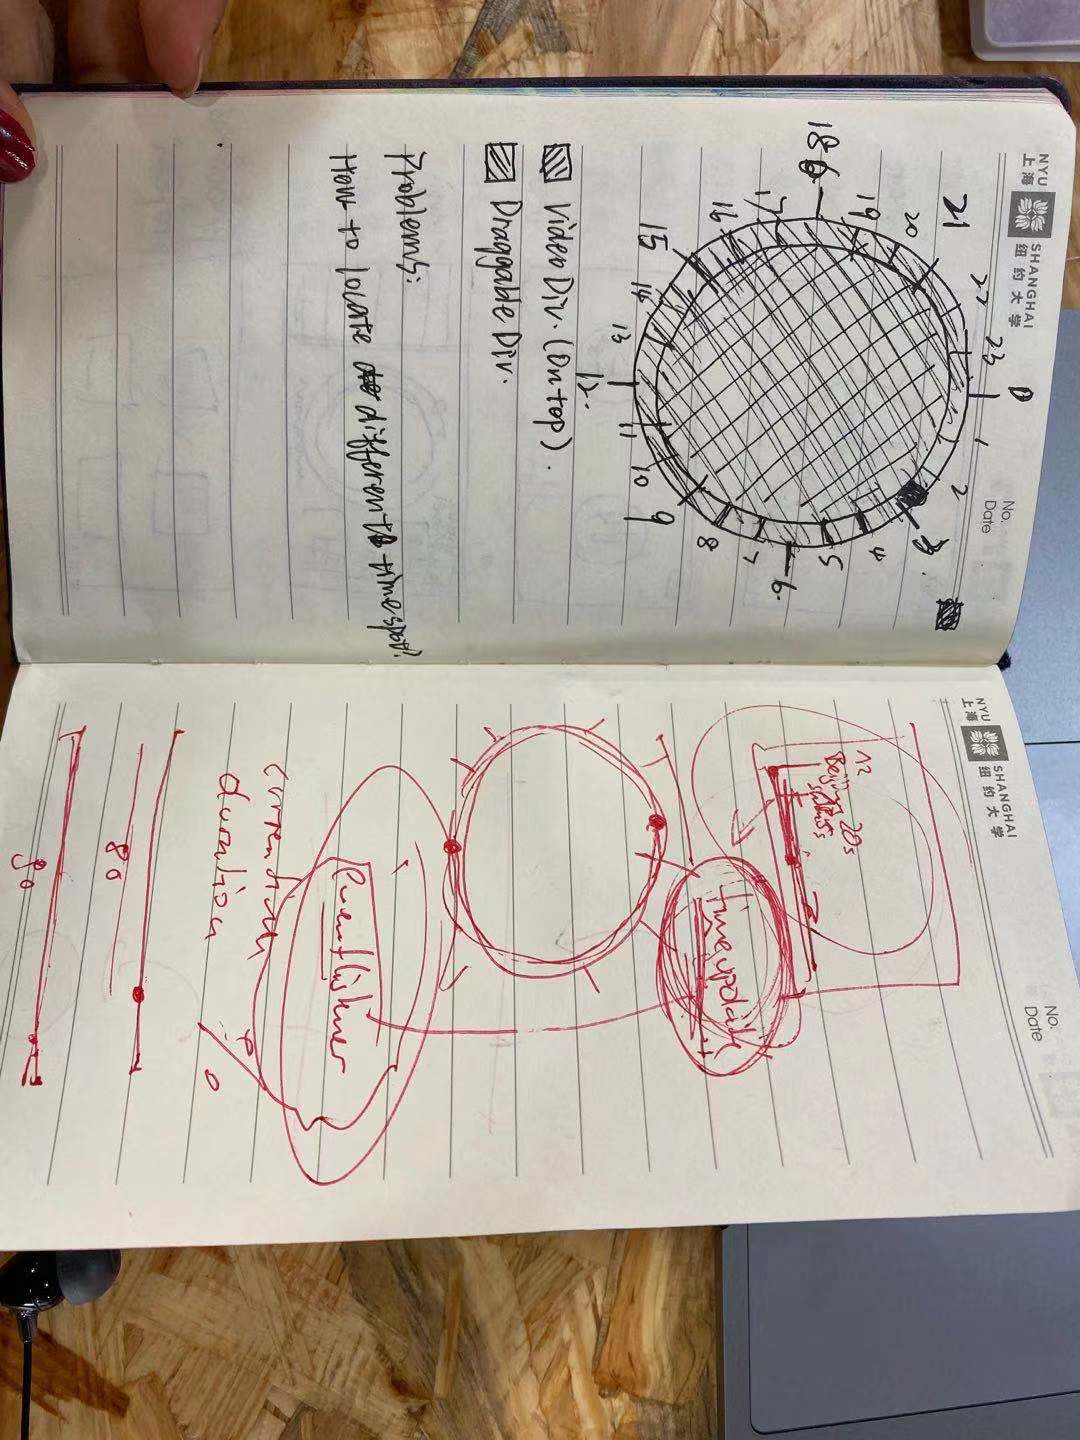 NYU SHANGHAI
上海 纽约大学
No.
Date
0
1
2
3.
4
5
6.
7
8
9
10
11
12.
13
14
15
16
17
18
19
20
21
22
23
Video Div. (On top).
Draggable Div.
Problems:
How to locate different time spot?
NYU SHANGHAI
上海 纽约大学
No.
Date
12
20s
timeupdate
Eventlistener
duration
0
80
80